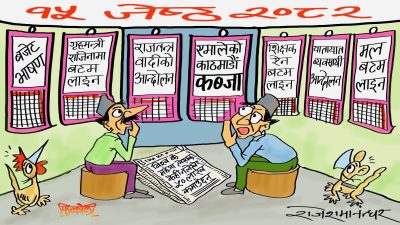 १५ जेष्ठ २०८२
बजेट
भाषण
गृहमन्त्री
राजिनामा
बटम
लाइन
राजतन्त्र
वादीको
आन्दोलन
रमालेको
काठमाडौं
कब्जा
शिक्षक
ऐन
बटम
लाइन
यातायात
व्यवसायी
आन्दोलन
मल
बटम
लाइन
राजेशमानन्धर